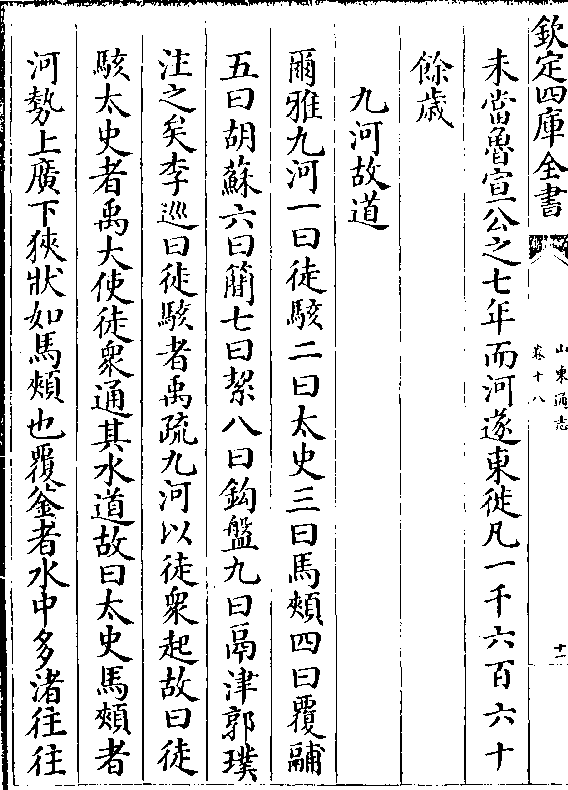 欽定四庫全書
山東通志
卷十八
十一
未當魯宣公之七年而河遂東徙凡一千六百六十
餘歳
九河故道
爾雅九河一曰徒駭二曰太史三曰馬頰四曰覆鬴
五曰胡蘇六曰簡七曰絜八曰鈎盤九曰鬲津郭璞
注之矣李廵曰徒駭者禹疏九河以徒衆起故曰徒
駭太史者禹大使徒衆通其水道故曰太史馬頰者
河勢上廣下狹狀如馬頰也覆釜者水中多渚往往